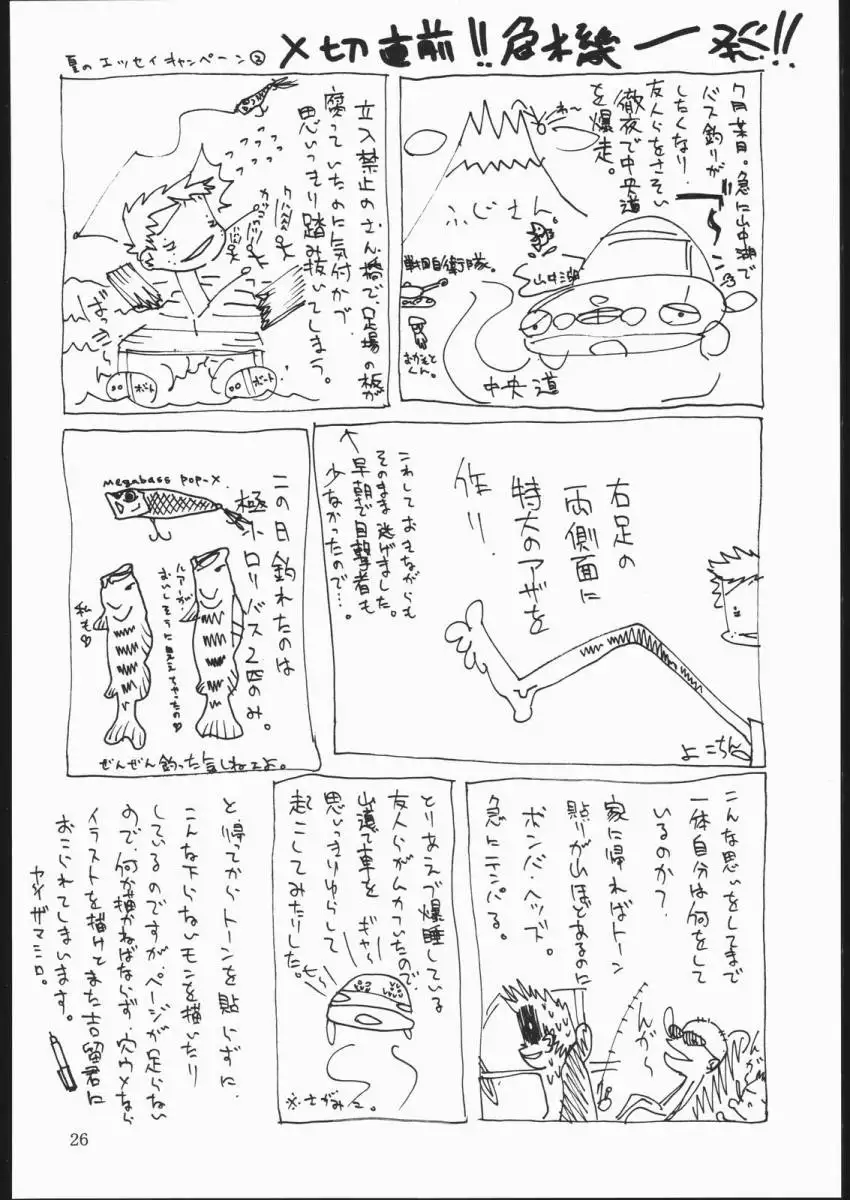 夏のエッセイキャンペーン②
〆切直前!!危機一発!!
7月某日。急に山中湖で
バス釣りが
したくなり、
友人らをさそい
徹夜で中央道
を爆走。
わ〜
ふじさん。
山中湖
戦国自衛隊。
おかもと
くん。
中央道
立入禁止のさん橋で、足場の板が
腐っていたのに気付かず
思いっきり踏み抜いてしまう。
ばっきーん
ボート
ボート
右足の
両側面に
特大のアザを
作り、
こわしておきながらも
そのまま逃げました。
早朝で目撃者も
少なかったので…。
よこちん
この日釣れたのは
極小ロリバス2匹のみ。
megabass pop-x
ルアーが
おいしそうに見えちゃったの♡
私も♡
ぜんぜん釣った気しねーよ。
こんな思いをしてまで
一体自分は何をして
いるのか?
家に帰ればトーン
貼りが山ほどあるのに
ボンバヘッズ。
急にテンパる。
んが〜
とりあえず爆睡している
友人らがムカついたので
山道で車を
思いっきりゆらして
起こしてみたりした。
ギャ〜
※さがみこ。
と、帰ってからトーンを貼らずに、
こんな下らないモンを描いたり
しているのですが、ページが足らない
ので、何か描かねばならず、穴ウメなら
イラストを描けとまた吉留君に
おこられてしまいます。
ヤイザマシロ。
26